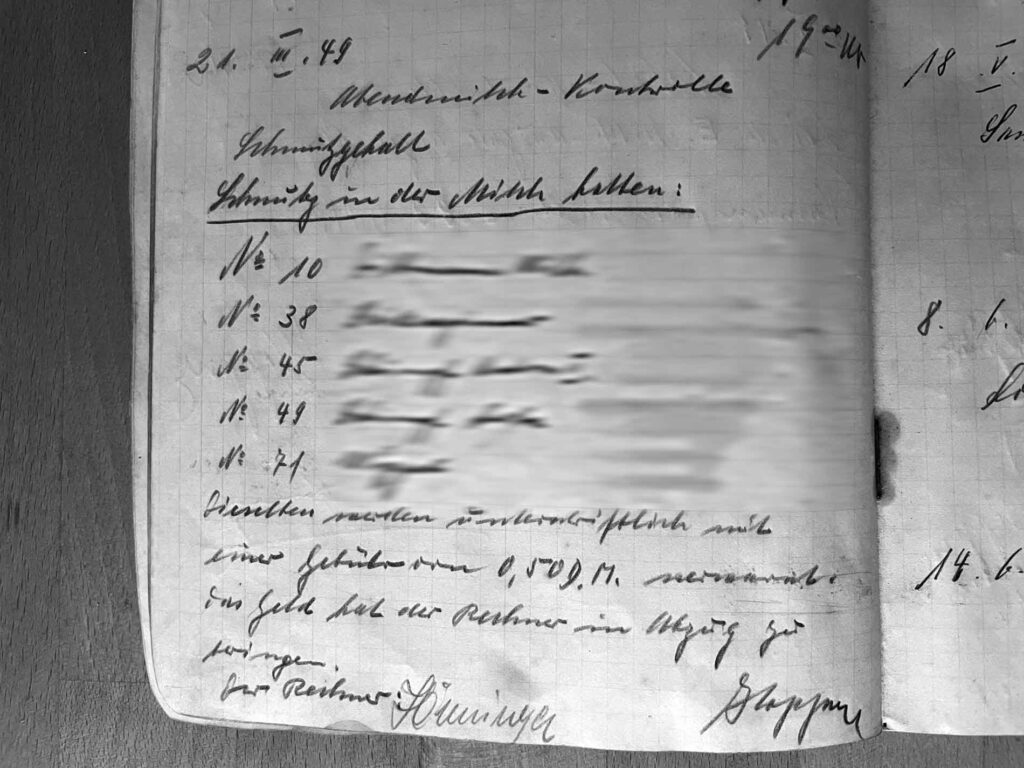 19⁰⁰ Uhr
21. III. 49
Abendmilch-Kontrolle
Schmutzgehalt
Schmutz in der Milch hatten:
№ 10
№ 38
№ 45
№ 49
№ 71
Dieselben werden unterschriftlich mit
einer Gebühr von 0,50 D.M. verwarnt.
das Geld hat der Rechner in Abzug zu
bringen.
Der Rechner:
18. V.
8. 6.
14. 6.